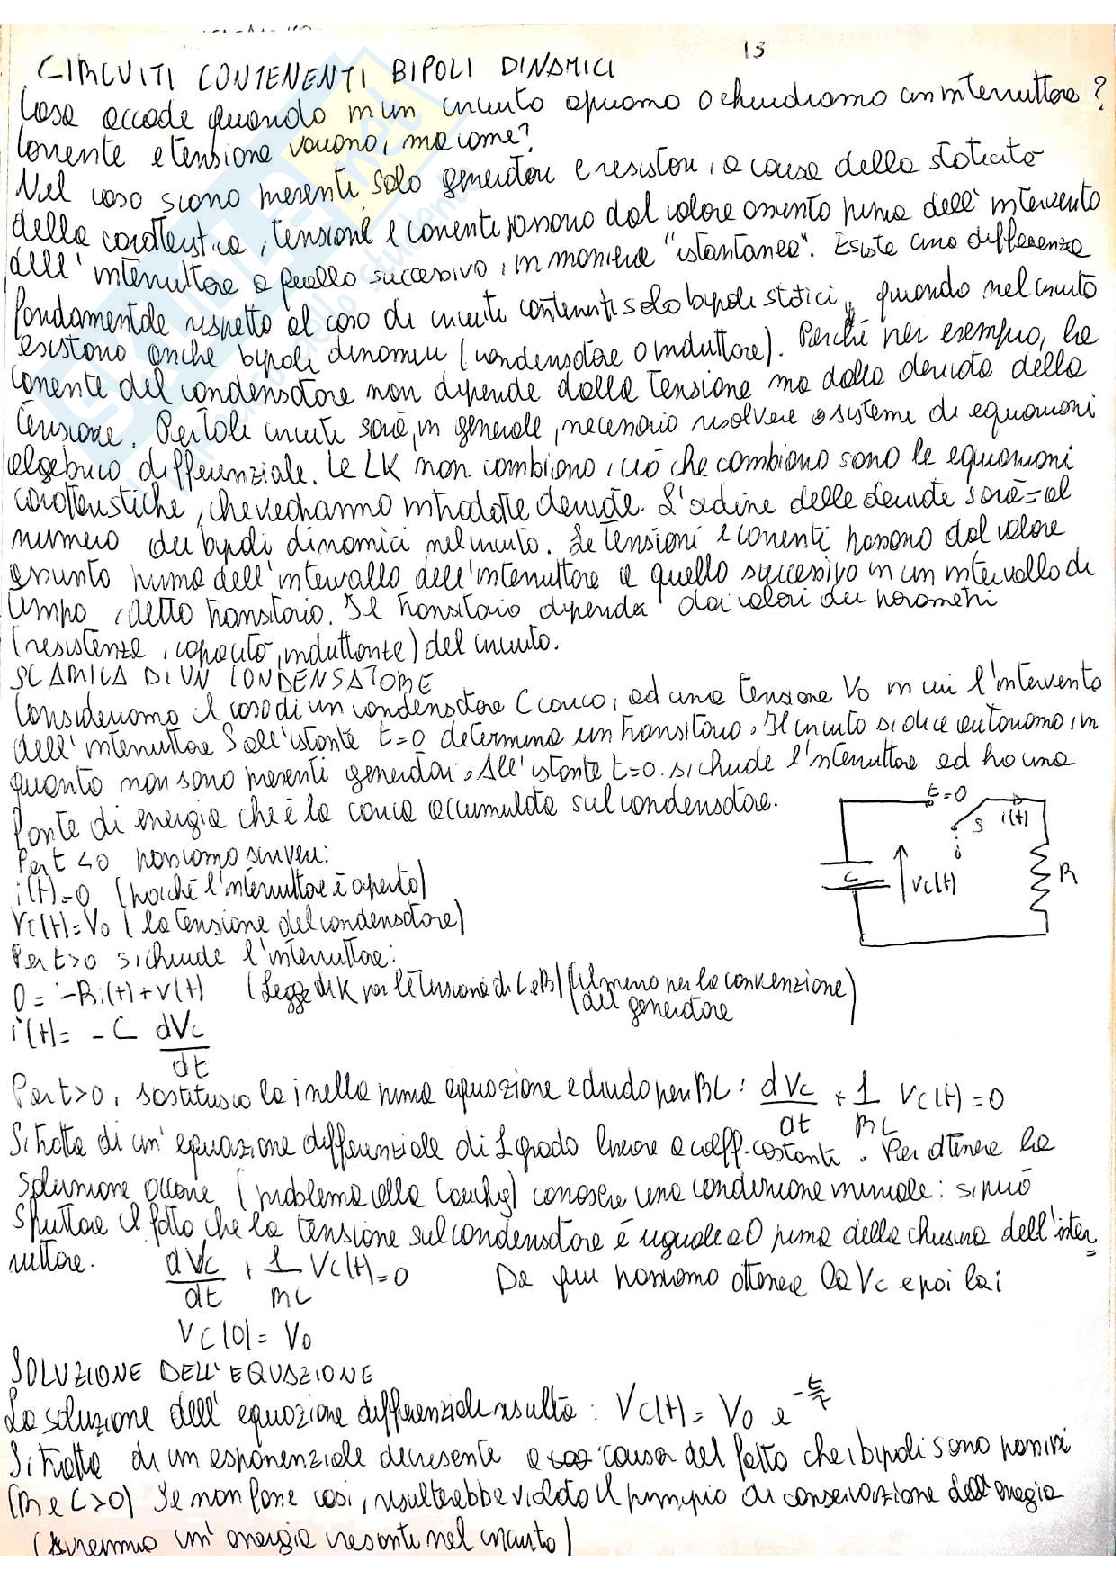 13
CIRCUITI CONTENENTI BIPOLI DINAMICI
Cosa accade quando in un circuito apriamo o chiudiamo un interruttore?
Corrente e tensione variano, ma come?
Nel caso siano presenti solo generatori e resistori, a causa della staticità
della caratteristica, tensione e corrente passano dal valore assunto prima dell'intervento
dell'interruttore a quello successivo, in maniera "istantanea". Esiste una differenza
fondamentale rispetto al caso di circuiti contenenti solo bipoli statici, quando nel circuito
esistono anche bipoli dinamici (condensatore o induttore). Perché per esempio, la
corrente del condensatore non dipende dalla tensione ma dalla derivata della
tensione. Per tali circuiti sarà, in generale, necessario risolvere sistemi di equazioni
algebrico differenziale. Le LK non cambiano, ciò che cambiano sono le equazioni
caratteristiche, che vedranno introdotte derivate. L'ordine delle derivate sarà = al
numero dei bipoli dinamici nel circuito. Le tensioni e correnti passano dal valore
assunto prima dell'intervallo dell'interruttore a quello successivo in un intervallo di
tempo, detto transitorio. Il transitorio dipende dai valori dei parametri
(resistenza, capacità, induttanze) del circuito.
SCARICA DI UN CONDENSATORE
Consideriamo il caso di un condensatore C carico, ad una tensione V0 in cui l'intervento
dell'interruttore S all'istante t=0 determina un transitorio. Il circuito si dice autonomo, in
quanto non sono presenti generatori. All'istante t=0 si chiude l'interruttore ed ho una
fonte di energia che è la carica accumulata sul condensatore.
t=0
S
i(t)
C
Vc(t)
R
Per t<0 possiamo scrivere:
i(t)=0 (poiché l'interruttore è aperto)
Vc(t)=V0 (la tensione del condensatore)
Per t>0 si chiude l'interruttore:
0 = -Ri(t)+v(t) (Legge di K per le tensione di C e R) (il meno per la convenzione
del generatore)
i(t)= - C dVc/dt
Per t>0, sostituisco la i nella prima equazione e divido per RC: dVc/dt + 1/RC Vc(t)=0
Si tratta di un'equazione differenziale di I grado lineare a coeff. costante. Per ottenere la
soluzione occorre (problema alla Cauchy) conoscere una condizione iniziale: si può
sfruttare il fatto che la tensione sul condensatore è uguale a 0 prima della chiusura dell'inter-
ruttore. dVc/dt + 1/RC Vc(t)=0 Da qui possiamo ottenere la Vc e poi la i
Vc(0)= V0
SOLUZIONE DELL'EQUAZIONE
La soluzione dell'equazione differenziale risulta: Vc(t)= V0 e^-t/τ
Si tratta di un esponenziale decrescente a causa del fatto che i bipoli sono passivi
(R e C>0) Se non fosse così, risulterebbe violato il principio di conservazione dell'energia
(avremmo un'energia crescente nel circuito)